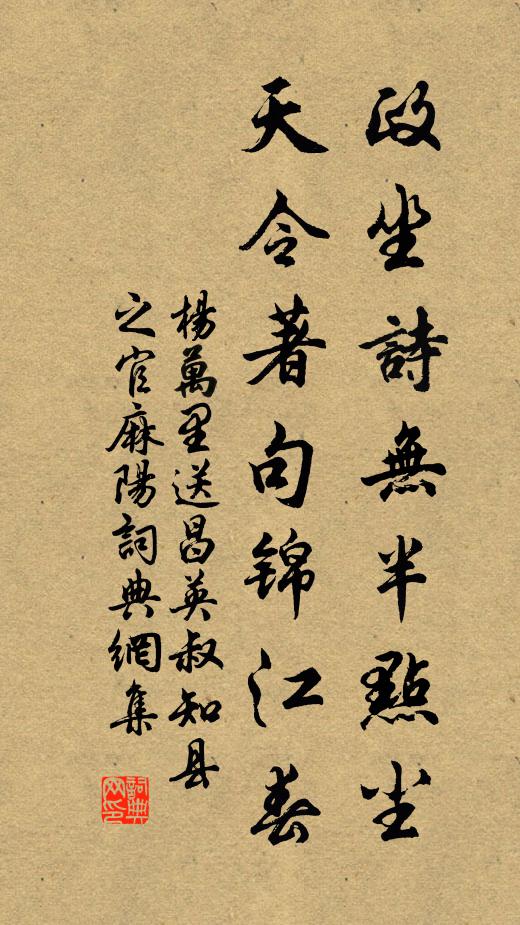 政坐詩無半點尘
天令著句锦江春
楊萬里送昌英叔知县
之官麻陽詞典網集
詞典网印